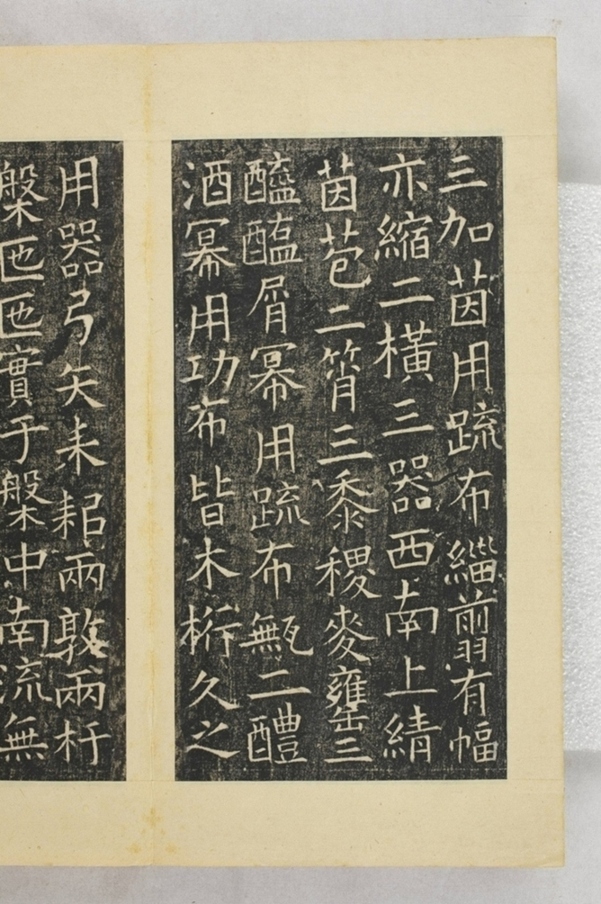 三加茵用疏布緇翦有幅
亦縮二橫三器西南上綪
茵苞二筲三黍稷麥罋三
醯醢屑冪用疏布甒二醴
酒冪用功布皆木桁久之
用器弓矢耒耜兩敦兩杅
槃匜匜實于槃中南流無